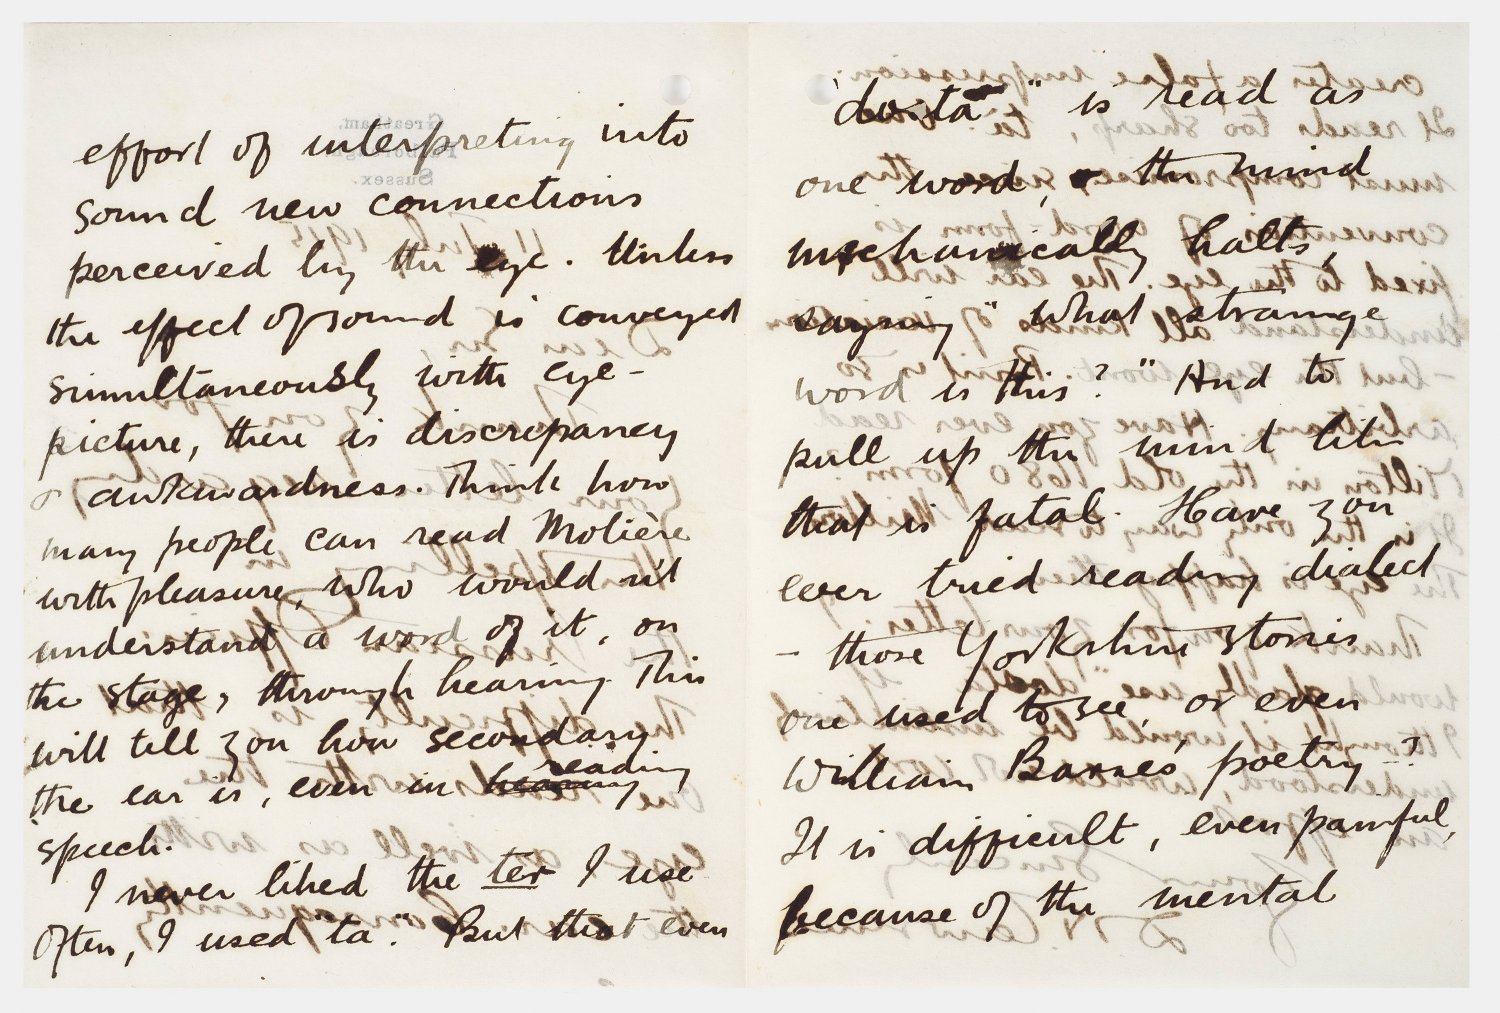 effort of interpreting into
sound new connections
perceived by the eye. Unless
the effect of sound is conveyed
simultaneously with eye-
picture, there is discrepancy
& awkwardness. Think how
many people can read Molière
with pleasure, who would n't
understand a word of it, on
the stage, through hearing. This
will tell you how secondary
the ear is, even in hearing reading
speech.
I never liked the ter I use
often, I used "ta". But that even
is read as
one word, & the mind
mechanically halts,
saying "what strange
word is this?" And to
pull up the mind like
that is fatal. Have you
ever tried reading dialect
- those Yorkshire stories
one used to see, or even
William Barnes' poetry -?
It is difficult, even painful,
because of the mental